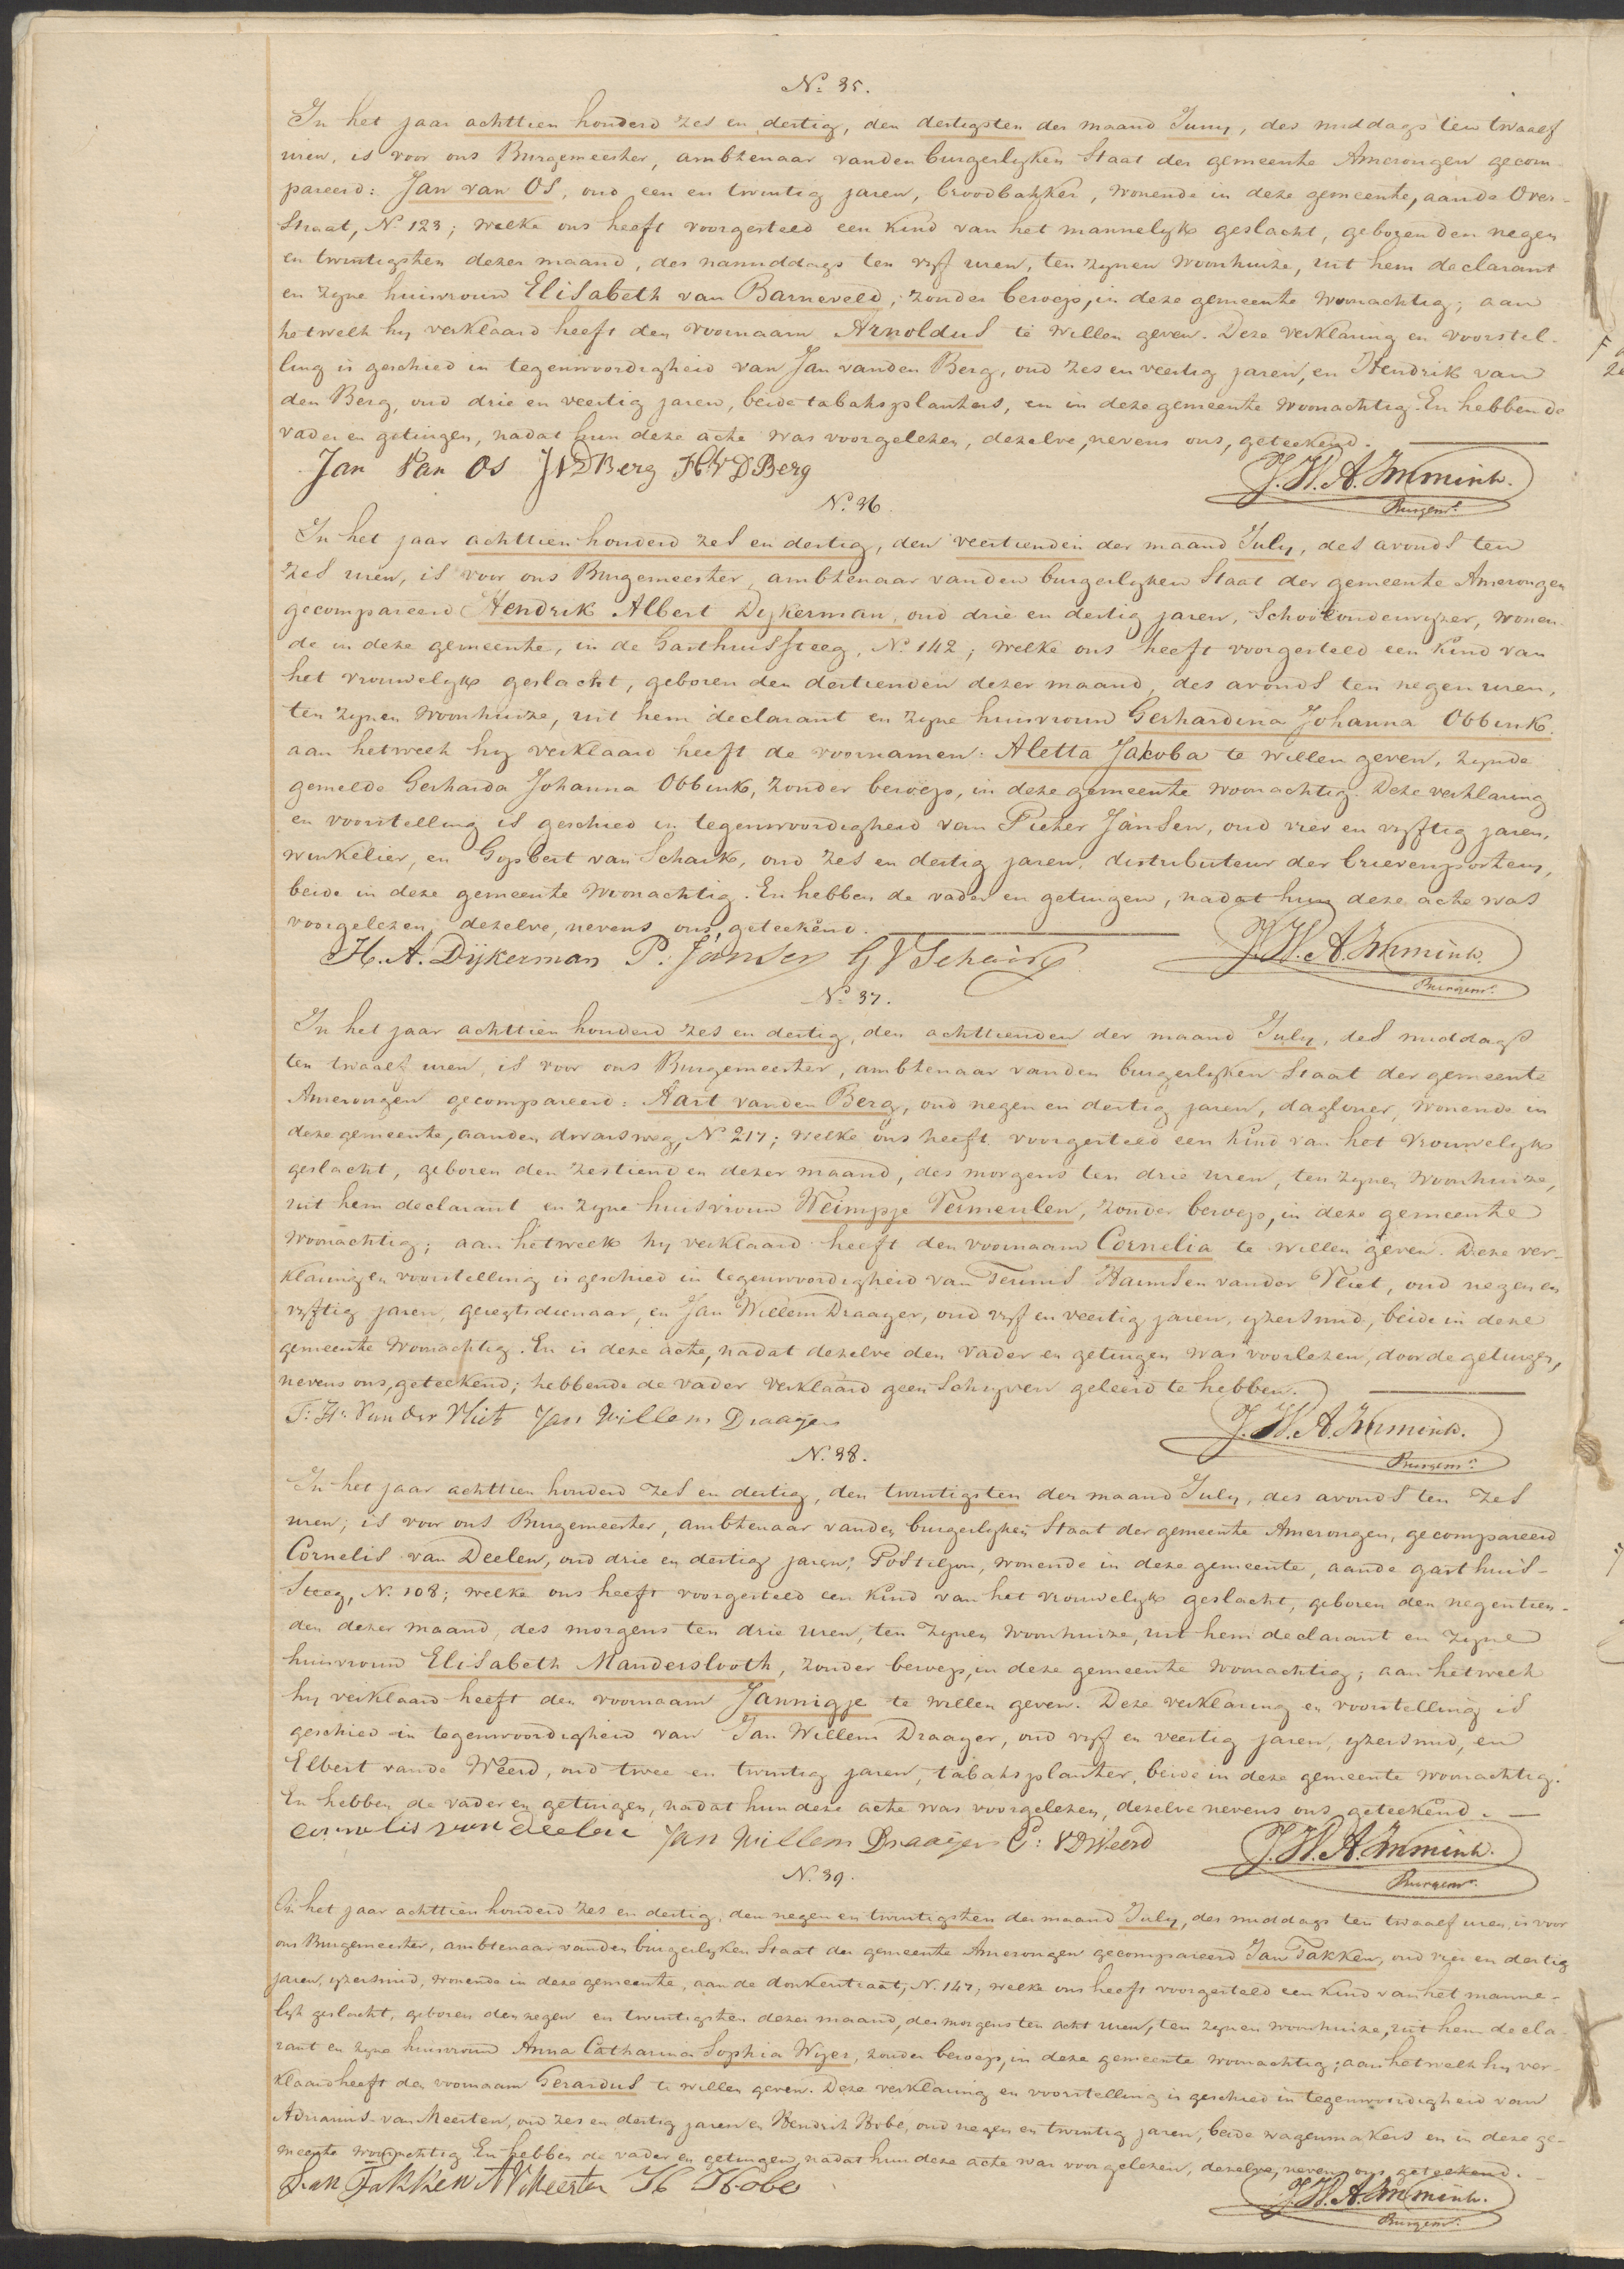 N.o 35.
In het jaar achttien honderd zes en dertig, den dertigsten der maand Juny, des middags ten twaalf
uren, is voor ons Burgemeester, ambtenaar vanden burgerlyken Staat der gemeente Amerongen gecom-
pareerd: Jan van Os, oud een en twintig jaren, broodbakker, wonende in deze gemeente, aande Over-
straat, N.o 123; welke ons heeft voorgesteld een kind van het mannelyk geslacht, geboren den negen
en twintigsten dezer maand, des namiddags ten vyf uren, ten zynen woonhuize, uit hem declarant
en zyne huisvrouw Elisabeth van Barneveld, zonder beroep, in deze gemeente woonachtig; aan
hetwelk hy verklaard heeft den voornaam Arnoldus te willen geven. Deze verklaring en voorstel-
ling is geschied in tegenwoordigheid van Jan vanden Berg, oud zes en veertig jaren, en Hendrik van
den Berg, oud drie en veertig jaren, beide tabaksplanters, en in deze gemeente woonachtig. En hebben de
vader en getuigen, nadat hun deze acte was voorgelezen, dezelve, nevens ons, geteekend.
Jan Van Os JVDBerg HVDBerg J.H.A. Immink.
Burgemr.
N.o 36.
In het jaar achttien honderd zes en dertig, den veertienden der maand July, des avonds ten
zes uren, is voor ons Burgemeester, ambtenaar vanden burgerlyken Staat der gemeente Amerongen
gecompareerd Hendrik Albert Dykerman, oud drie en dertig jaren, Schoolonderwyzer, wonen-
de in deze gemeente, in de Gasthuissteeg, N.o 142; welke ons heeft voorgesteld een kind van
het vrouwelyk geslacht, geboren den dertienden dezer maand, des avonds ten negen uren,
ten zynen woonhuize, uit hem declarant en zyne huisvrouw Gerhardina Johanna Obbink.
aan hetwelk hy verklaard heeft de voornamen: Aletta Jakoba te willen geven, zynde
gemelde Gerharda Johanna Obbink, zonder beroep, in deze gemeente woonachtig. Deze verklaring
en voorstelling is geschied in tegenwoordigheid van Pieter Jansen, oud vier en vyftig jaren,
winkelier, en Gysbert van Schaik, oud zes en dertig jaren, distributeur der brievenposteryen,
beide in deze gemeente woonachtig. En hebben de vader en getuigen, nadat hun deze acte was
voorgelezen, dezelve, nevens ons, geteekend.
H. A. Dijkerman P. Jansen G V Schaik J.H.A. Immink.
Burgemr.
N.o 37.
In het jaar achttien honderd zes en dertig, den achttienden der maand July, des middags
ten twaalf uren, is voor ons Burgemeester, ambtenaar vanden burgerlyken Staat der gemeente
Amerongen gecompareerd: Aart vanden Berg, oud negen en dertig jaren, daglooner, wonende in
deze gemeente, aanden dwarsweg, N.o 217; welke ons heeft voorgesteld een kind van het vrouwelyk
geslacht, geboren den zestienden dezer maand, des morgens ten drie uren, ten zynen woonhuize,
uit hem declarant en zyne huisvrouw Weimpje Termeulen, zonder beroep, in deze gemeente
woonachtig; aan hetwelk hy verklaard heeft den voornaam Cornelia te willen geven. Deze ver-
klaring en voorstelling is geschied in tegenwoordigheid van Teunis Harmsen vander Vliet, oud negen en
vyftig jaren, geregtsdienaar, en Jan Willem Draayer, oud vyf en veertig jaren, yzersmid, beide in deze
gemeente woonachtig. En is deze acte, nadat dezelve den vader en getuigen was voorlezen, door de getuigen,
nevens ons, geteekend; hebbende de vader verklaard geen Schryven geleerd te hebben.
T: H: Van der Vliet Jan Willem Draaijer J.H.A. Immink.
Burgemr.
N.o 38.
In het jaar achttien honderd zes en dertig, den twintigsten der maand July, des avonds ten zes
uren, is voor ons Burgemeester, ambtenaar vanden burgerlyken Staat der gemeente Amerongen, gecompareerd
Cornelis van Deelen, oud drie en dertig jaren, Postiljon, wonende in deze gemeente, aande gasthuis-
steeg, N.o 108; welke ons heeft voorgesteld een kind van het vrouwelyk geslacht, geboren den negentien-
den dezer maand, des morgens ten drie uren, ten zynen woonhuize, uit hem declarant en zyne
huisvrouw Elisabeth Manderslooth, zonder beroep, in deze gemeente woonachtig; aan hetwelk
hy verklaard heeft den voornaam Jannigje te willen geven. Deze verklaring en voorstelling is
geschied in tegenwoordigheid van Jan Willem Draayer, oud vyf en veertig jaren, yzersmid, en
Elbert vande Weerd, oud twee en twintig jaren, tabaksplanter, beide in deze gemeente woonachtig.
En hebben de vader en getuigen, nadat hun deze acte was voorgelezen, dezelve nevens ons geteekend.
cornelis van deelen Jan Willem Draaijer E: VDWeerd J.H.A. Immink.
Burgemr.
N.o 39.
In het jaar achttien honderd zes en dertig, den negen en twintigsten der maand July, des middags ten twaalf uren, is voor
ons Burgemeester, ambtenaar vanden burgerlyken Staat der gemeente Amerongen gecompareerd Jan Takken, oud vier en dertig
jaren, yzersmid, wonende in deze gemeente, aan de donkerstraat, N.o 147, welke ons heeft voorgesteld een kind van het manne-
lyk geslacht, geboren den negen en twintigsten dezer maand, des morgens ten acht uren, ten zynen woonhuize, uit hem decla-
rant en zyne huisvrouw Anna Catharina Sophia Wyer, zonder beroep, in deze gemeente woonachtig; aan hetwelk hy ver-
klaard heeft den voornaam Gerardus te willen geven. Deze verklaring en voorstelling is geschied in tegenwoordigheid van
Adrianus van Meerten, oud zes en dertig jaren en Hendrik Hobé, oud negen en twintig jaren, beide wagenmakers en in deze ge-
meente woonachtig. En hebben de vader en getuigen, nadat hun deze acte was voorgelezen, dezelve, nevens ons geteekend.
Jan Takken A V Meerten H Hobe J.H.A. Immink.
Burgemr.